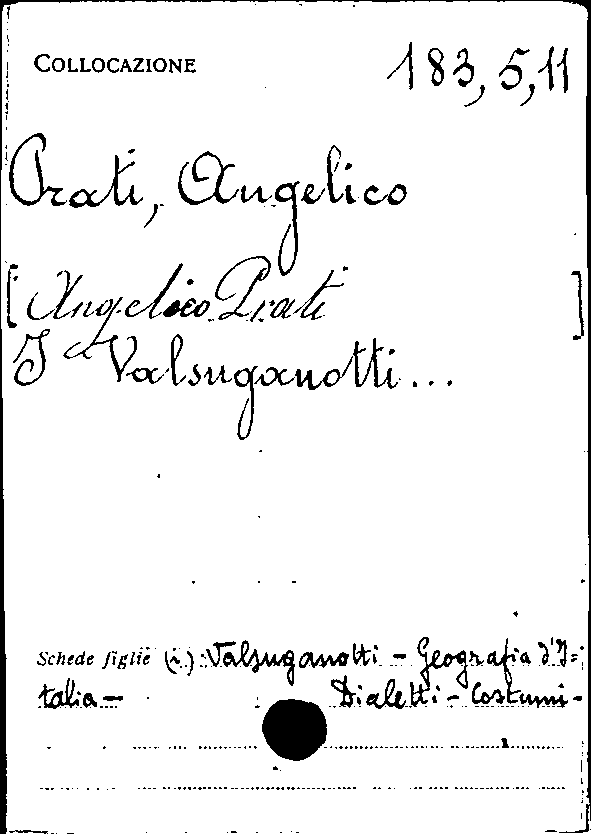 COLLOCAZIONE 183, 5, 11
Prati, Angelico
[Angelico Prati]
I Valsuganotti...
Schede figlie (i): Valsuganotti - Geografia d'I=
talia - Dialetti - Costumi -